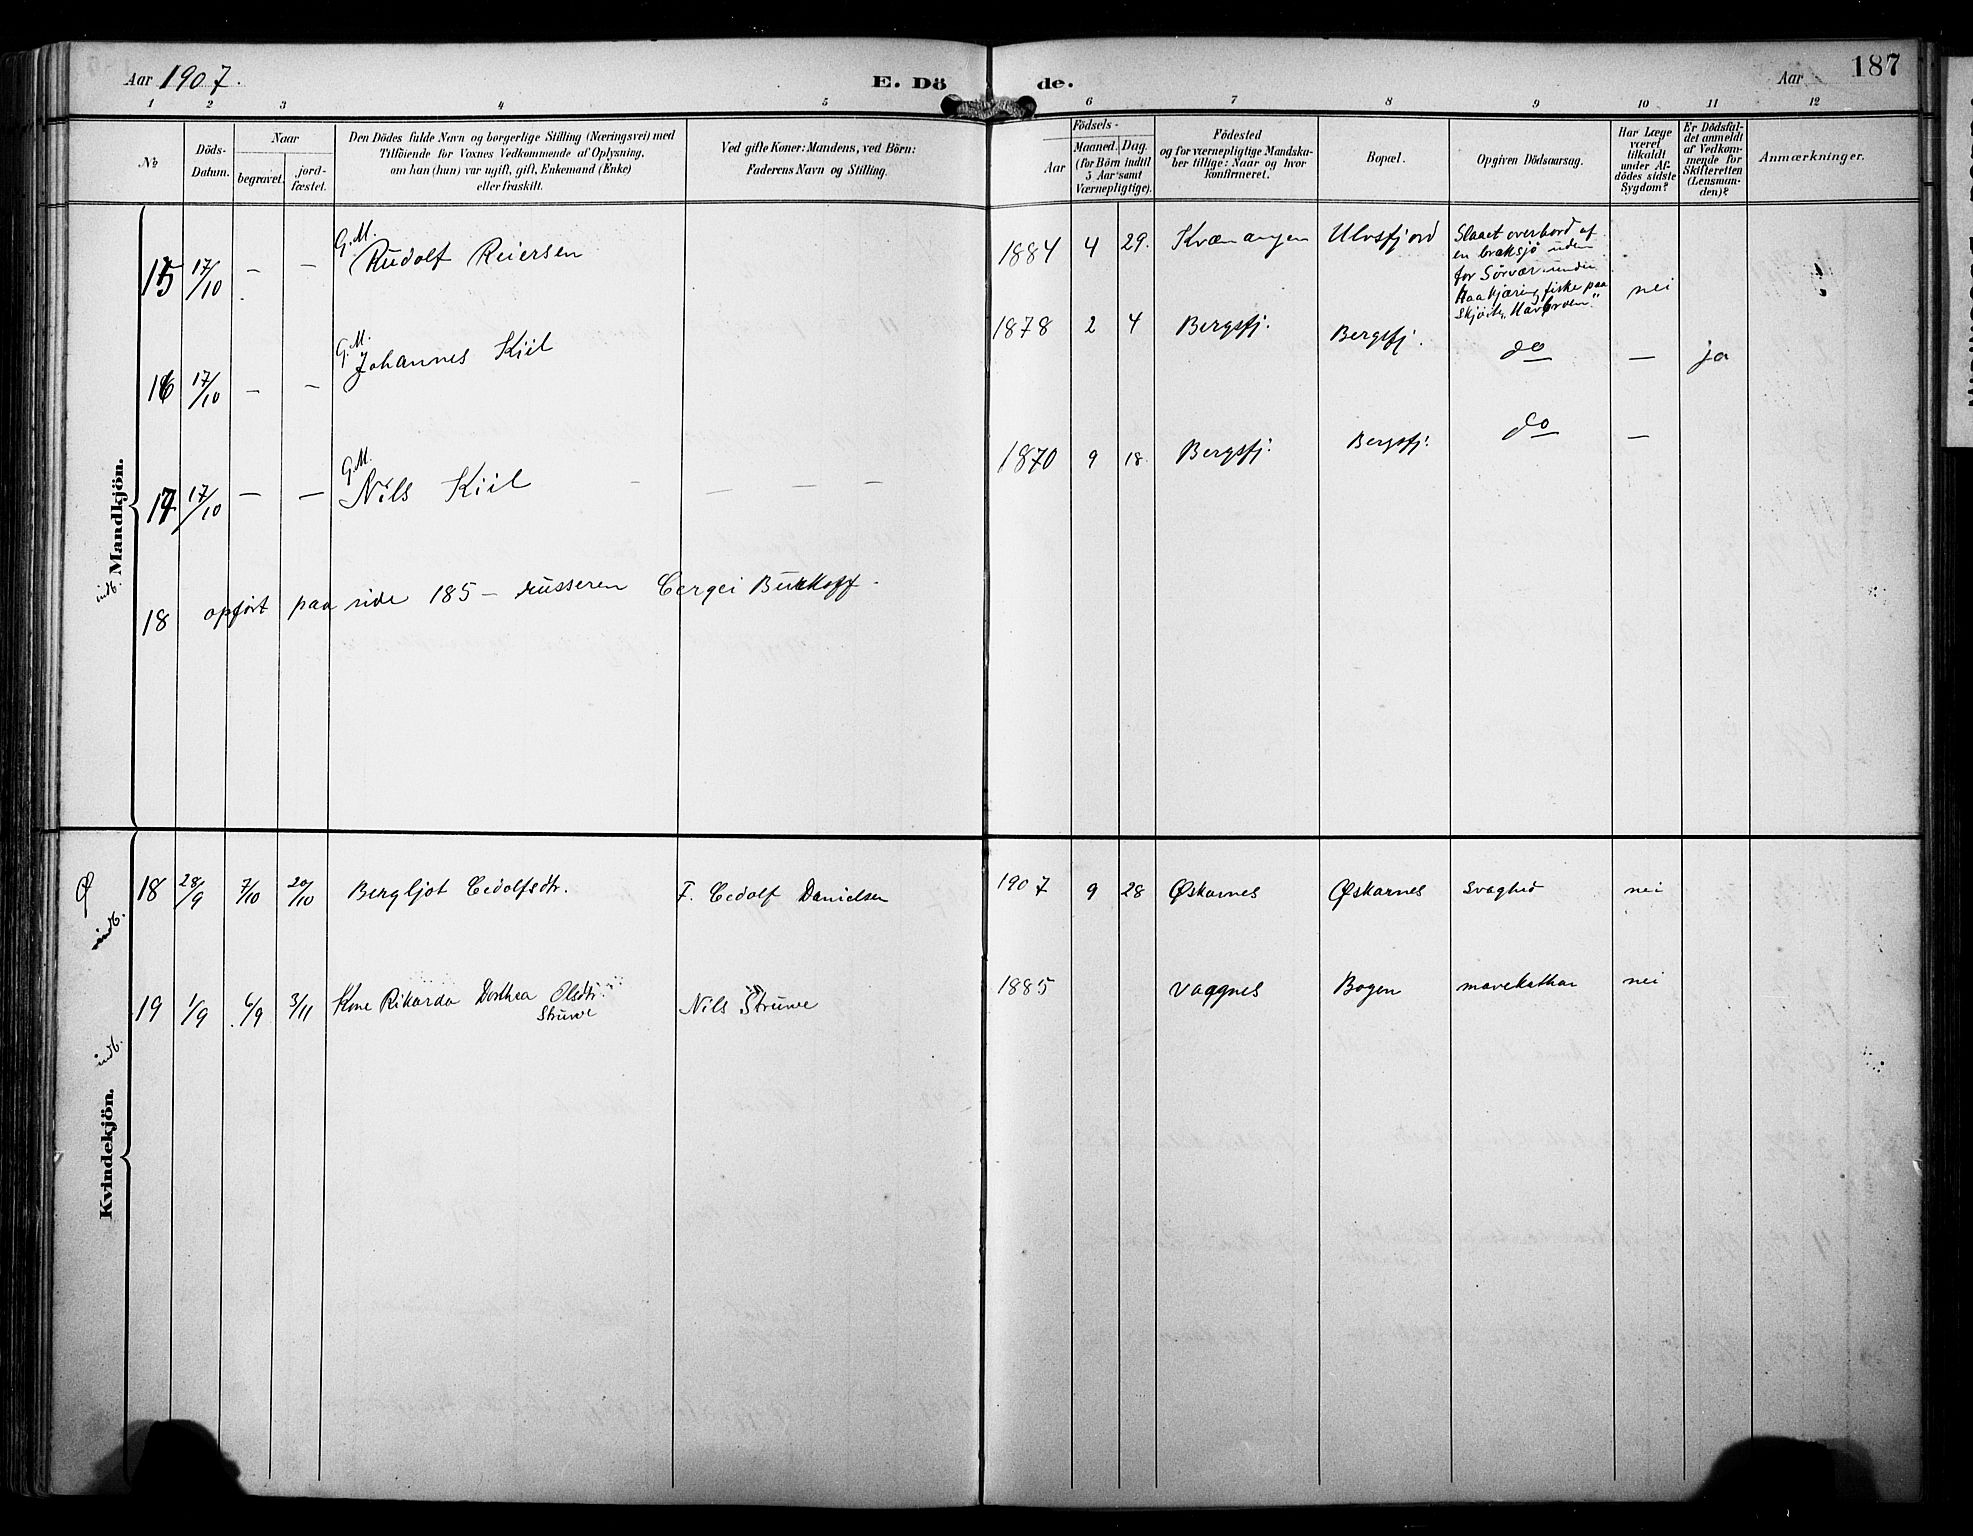 Aar 1907.
E. Dö
de.
Aar
187
1 2 3 4 5 6 7 8 9 10 11 12
No
Döds-
Datum.
Naar
begravet.
jord-
fæstet.
Den Dödes fulde Navn og borgerlige Stilling (Næringsvei) med
Tilföiende for Voxnes Vedkommende af Oplysning,
om han (hun) var ugift, gift, Enkemand (Enke)
eller fraskilt.
Ved gifte Koner: Mandens, ved Börn:
Faderens Navn og Stilling.
Födsels-
Aar
Maaned. Dag.
(for Börn indtil
5 Aar samt
Værnepligtige).
Födested
og for værnepligtige Mandska-
ber tillige: Naar og hvor
konfirmeret.
Bopæl.
Opgiven Dödsaarsag.
Har Læge
været
tilkaldt
under Af-
dödes sidste
Sygdom?
Er Dödsfal-
det anmeldt
af Vedkom-
mende for
Skifteretten
(Lensman-
den)?
Anmærkninger.
Mandkjön.
indb.
15 17/10 – – G.M. Rudolf Reiersen 1884 4 29. Kvænangen Ulvsfjord
Slaaet overbord af
en braksjö uden
for Sörvær under
Haakjæring fiske paa
nei
16 17/10 – – G.M. Johannes Kiil 1878 2 4 Bergsfj. Bergsfj. do – ja
17 17/10 – – G.M. Nils Kiil – – – – 1870 9 18. Bergsfj. Bergsfj. do –
18 opfört paa side 185 – russeren Cergei
Kvindekjön.
Ø
indb.
18 28/9 7/10 20/10 Bergljot Cedolfsdtr. F. Cedolf Danielsen 1907 9 28 Øskarnes Øskarnes svaghed nei
indb.
19 1/9 6/9 3/11 Kone Rikarda Dorthea Olsdtr.
Struwe
Nils Struwe 1885 Vaggnes Bogen mavekathar nei